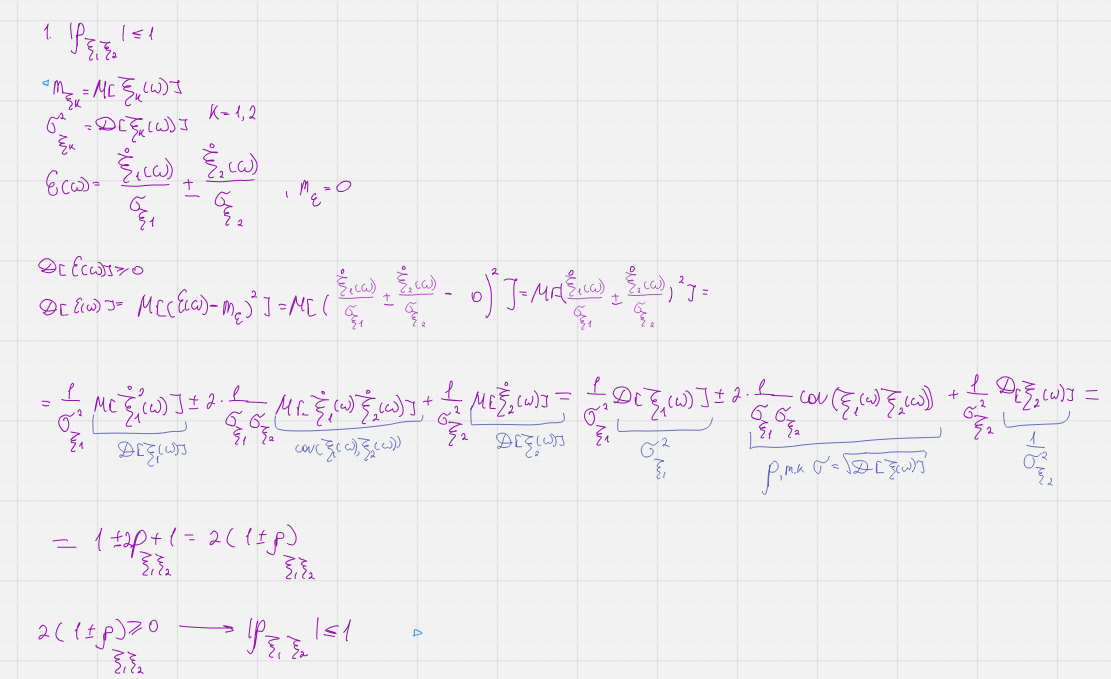 1. |ρ_{ξ₁ξ₂}| ≤ 1
◁ m_{ξₖ} = M[ξₖ(ω)]
σ²_{ξₖ} = D[ξₖ(ω)] K = 1,2
ε(ω) = ξ̊₁(ω)/σ_{ξ₁} ± ξ̊₂(ω)/σ_{ξ₂} , m_ε = 0
D[ε(ω)] ≥ 0
D[ε(ω)] = M[(ε(ω) - m_ε)²] = M[(ξ̊₁(ω)/σ_{ξ₁} ± ξ̊₂(ω)/σ_{ξ₂} - 0)²] = M[(ξ̊₁(ω)/σ_{ξ₁} ± ξ̊₂(ω)/σ_{ξ₂})²] =
= 1/σ²_{ξ₁} M[ξ̊₁²(ω)] ± 2 · 1/(σ_{ξ₁}σ_{ξ₂}) M[ξ̊₁(ω)ξ̊₂(ω)] + 1/σ²_{ξ₂} M[ξ̊₂(ω)] = 1/σ²_{ξ₁} D[ξ₁(ω)] ± 2 · 1/(σ_{ξ₁}σ_{ξ₂}) cov(ξ₁(ω)ξ₂(ω)) + 1/σ²_{ξ₂} D[ξ₂(ω)] =
D[ξ₁(ω)] cov(ξ₁(ω),ξ₂(ω)) D[ξ₂(ω)] σ²_{ξ₁} ρ, т.к σ = √D[ξ(ω)] 1/σ²_{ξ₂}
= 1 ± 2ρ_{ξ₁ξ₂} + 1 = 2(1 ± ρ_{ξ₁ξ₂})
2(1 ± ρ_{ξ₁ξ₂}) ≥ 0 ⟶ |ρ_{ξ₁ξ₂}| ≤ 1 ▷